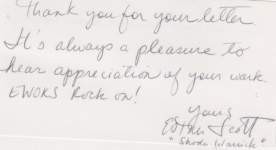 Thank you for your letter
It's always a pleasure to
hear appreciation of your work
EWOKS Rock on!
Yours
Scott
"
"